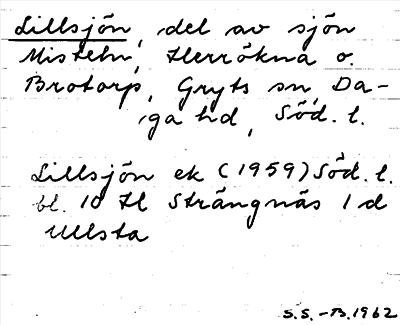 Lillsjön, del av sjön
Misteln, Herrökna o.
Brotorp, Gryts sn, Da-
ga hd, Söd. l.
Lillsjön ek (1959) Söd. l.
bl. 10 H Strängnäs 1 d
Ullsta
S.S.-B. 1962